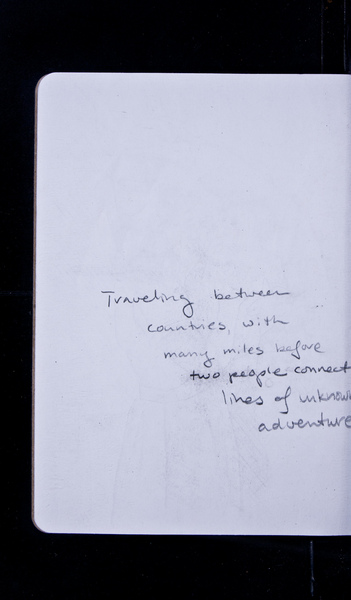 Traveling between
countries, with
many miles before
two people connect
lines of unknow
adventure